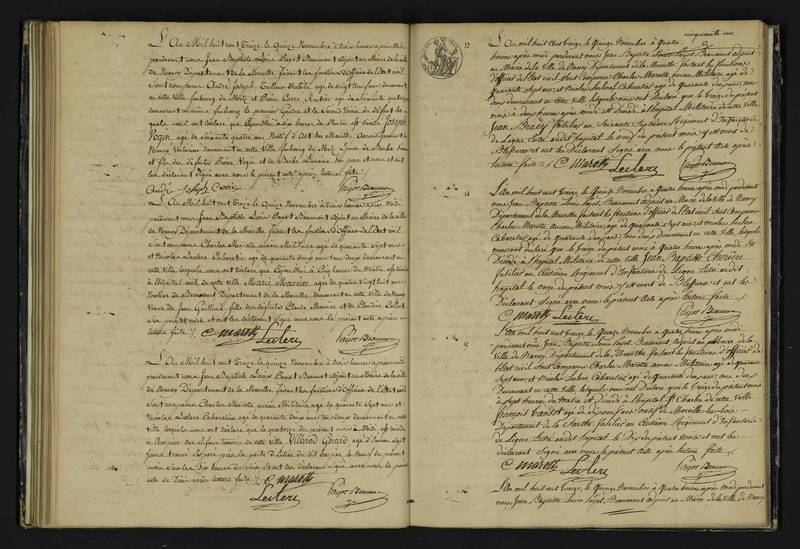 L'An Mil huit cent Treize le Quinze Novembre à trois heures après midi
pardevant nous Jean Baptiste Louis Payot Beaumont adjoint au Maire de la ville
de Nancy Département de la Meurthe faisant les fonctions d'Officier de l'Etat civil
sont comparus Claude Joseph
en cette ville faubourg de Metz et Pierre
demeurant même faubourg le premier Gendre et le second Voisin du défunt les
quels nous ont déclaré que aujourd'hui à dix heures du Matin est décédé Joseph
Vogin agé de soixante quatre ans Natif d' Art sur Meurthe Arrondissement de
Nancy Vigneron demeurant en cette Ville faubourg de Metz
et fils des défunts Pierre Vogin et de Barbe
déclarant signé avec nous le présent acte après lecture faite
Payot Beaumont
L'An Mil huit cent Treize le Quinze Novembre à trois heures après midi
pardevant nous Jean Baptiste Louis Payot Beaumont adjoint au Maire de la ville
de Nancy Département de la Meurthe faisant les fonctions d'Officier de l'Etat civil
sont comparus Charles Marotte ancien Militaire agé de quarante sept ans
et Nicolas Leclerc Cabaretier agé de quarante deux ans tous deux demeurant en
cette Ville lesquels nous ont déclaré que Cejourd'hui à Cinq heures du Matin est décédé
à l'hopital civil de cette ville Marie Maurice agée de quatre Vingt huit ans
Native de Département de la Meurthe demeurant en cette Ville de Nancy
Veuve de Jean fille des défunts Claude Maurice et de Claudine
et ont les déclarant signé avec nous le présent acte après
lecture faite C marotte Leclerc Payot Beaumont
L'An Mil huit cent Treize le quinze Novembre à trois heures après midi
pardevant nous Jean Baptiste Louis Payot Beaumont adjoint au Maire de la ville
de Nancy Département de la Meurthe faisant les fonctions d'Officier de l'Etat civil
sont comparus Charles Marotte ancien Militaire agé de quarante sept ans et
Nicolas Leclerc Cabaretier agé de quarante deux ans tous deux demeurant en cette
ville lesquels nous ont déclaré que le quatorze du présent mois à Midi est décédé
à l'hospice des Enfans trouvés de cette ville Vilbrod Girard agé d'environ sept
jours trouvé Exposé près la porte d'Entrée du dit hospice le neuf du présent
mois vers les dix heures du soir et ont les déclarant signé avec nous le présent
acte de Décès après lecture faite C marotte
Leclerc Payot Beaumont
cinquante un
13
L'An mil huit cent treize, le Quinze Novembre à Quatre
heures après midi pardevant nous Jean Baptiste Louis Payot Beaumont adjoint
au Maire de la Ville de Nancy Département de la Meurthe faisant les fonctions
d'Officier de l'Etat civil Sont Comparus Charles Marotte ancien Militaire agé de
Quarante sept ans et Nicolas Leclerc Cabaretier agé de Quarante deux ans, tous
deux demeurant en cette Ville lesquels nous ont déclaré que le du présent
mois à heures après midi est Décédé à l'hôpital Militaire de cette Ville
Jean fusilier au Soixante Septième Régiment d'Infanterie
de Ligne Entré audit hôpital le neuf du présent mois et mort de
Blessure et ont les Déclarant Signé avec nous le présent Acte après
lecture faite C marotte Leclerc Payot Beaumont
14
L'An mil huit cent treize, le Quinze Novembre à Quatre heures après midi pardevant
nous Jean Baptiste Louis Payot Beaumont adjoint au Maire de la Ville de Nancy
Département de la Meurthe faisant les fonctions d'Officier de l'Etat civil Sont Comparus
Charles Marotte ancien Militaire agé de Quarante Sept ans et Nicolas Leclerc
Cabaretier agé de Quarante deux ans tous deux demeurant en cette Ville lesquels
nous ont déclaré que le treize du présent mois à Quatre heures après midi Est
Décédé à l'hôpital Militaire de cette Ville Jean Baptiste
fusilier au Régiment d'Infanterie de Ligne Entré audit
hôpital le onze du présent mois et mort de Blessure et ont les
Déclarant Signé avec nous le présent Acte après lecture faite
C marotte Leclerc Payot Beaumont
15
L'An mil huit cent treize, le Quinze Novembre à Quatre heures après midi
pardevant nous Jean Baptiste Louis Payot Beaumont adjoint au Maire de la
Ville de Nancy Département de la Meurthe faisant les fonctions d'Officier de
l'Etat civil Sont Comparus Charles Marotte ancien Militaire agé de Quarante
Sept ans et Nicolas Leclerc Cabaretier agé de Quarante deux ans, tous deux
Demeurant en cette Ville lesquels nous ont déclaré que le treize du présent mois
à Sept heures du Matin est Décédé à l'hôpital St Charles de cette Ville
françois agé de vingt ans natif de
Département de la Sarthe fusilier au Régiment d'Infanterie
de Ligne Entré audit hôpital le Dix du présent mois et ont les
déclarant Signé avec nous le présent Acte après lecture faite
C marotte Leclerc Payot Beaumont
L'An mil huit cent treize, le Quinze Novembre à Quatre heures après midi pardevant
nous Jean Baptiste Louis Payot Beaumont adjoint au Maire de la Ville de Nancy